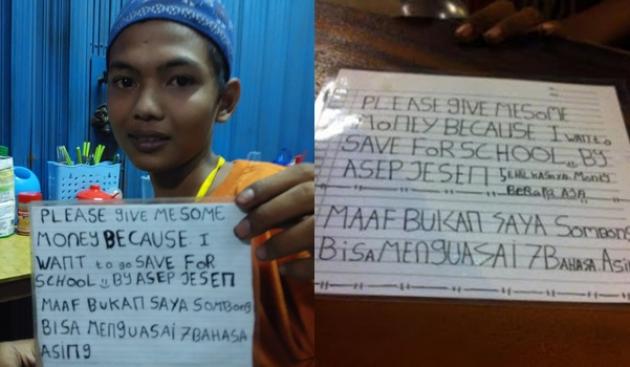 PLEASE gIVE ME SOME
MONEY BECAUSE I
WANT to go SAVE FOR
SCHOOL ,, BY ASEP JESEП
MAAF BUKAП SAYA SomboПg
BISA MEПgUASAI 7 BAHASA
ASIПg
PLEASE gIVE ME SomE
MoПEY BECAUSE I WANT to
SAVE FoR SCHOOL ,, By
ASEP JESEП
BERAPA AJA
MAAF BUKAП SAYA Sombong
BISA MENgUASAi 7 BAHASA ASiП